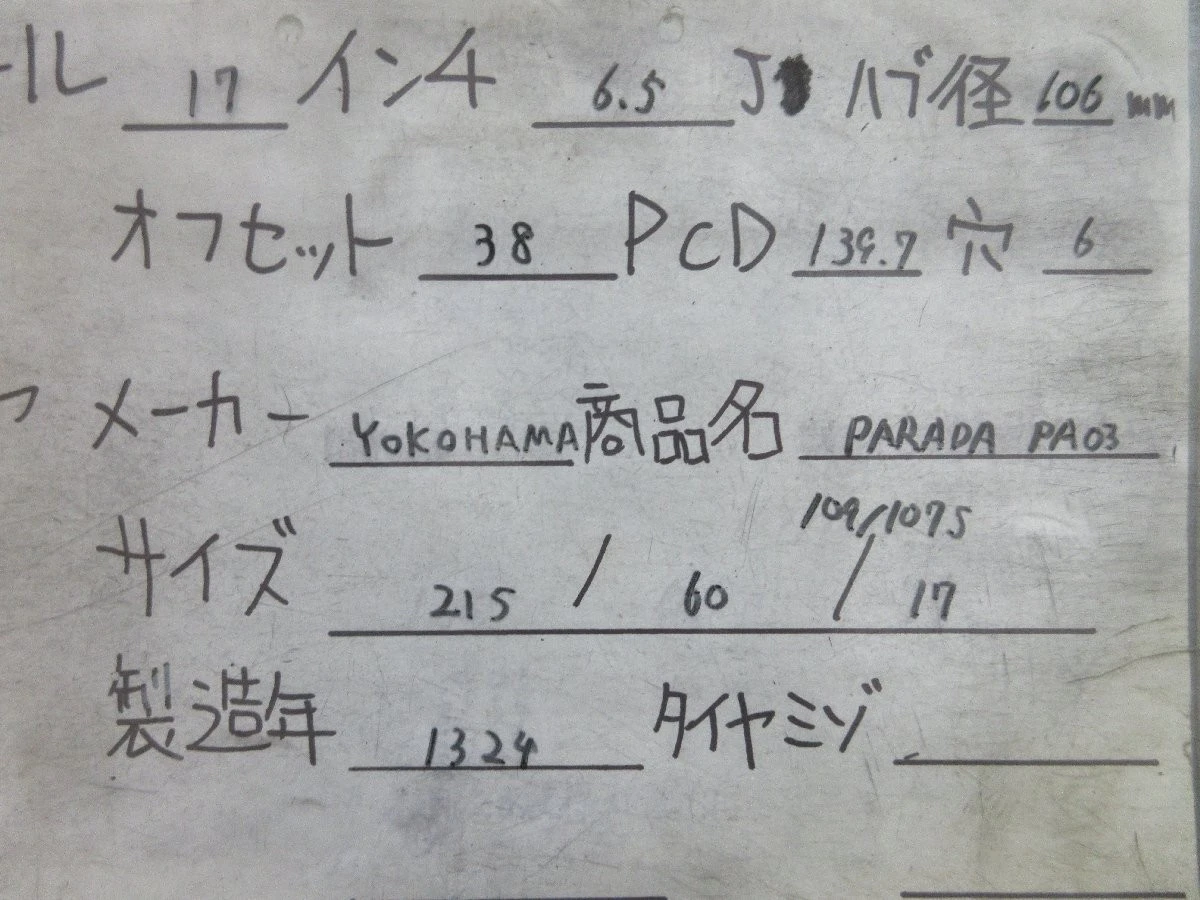 ール 17 インチ 6.5 J ハブ径 106 mm
オフセット 38 PCD 139.7 穴 6
メーカー YOKOHAMA 商品名 PARADA PA03
109/107S
サイズ 215 / 60 / 17
製造年 1324 タイヤミゾ